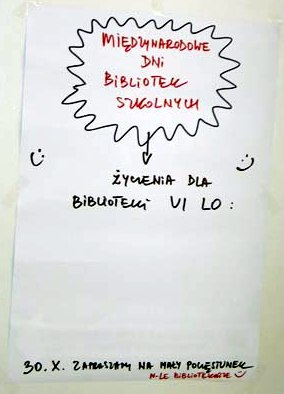 MIĘDZYNARODOWE
DNI
BIBLIOTEK
SZKOLNYCH
ŻYCZENIA DLA
BIBLIOTEKI VI LO:
30. X. ZAPRASZAM NA MAŁY POCZĘSTUNEK
N-LE BIBLIOTEKARZE